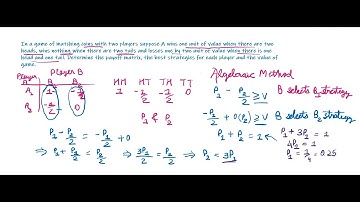 In a game of matching coins with two players suppose A wins one unit of value when there are two
heads, wins nothing when there are two tails and losses one by two unit of value when there is one
head and one tail. Determine the payoff matrix, the best strategies for each player and the value of
game.
Player B
Player
A B₁ B₂
A₁ 1 -1/2
A₂ -1/2 0
HH HT TH TT
1 -1/2 -1/2 0
P₁ & P₂
Algebraic Method
P₁ - P₂/2 ≥ V B selects B₁ strategy
-P₁/2 + 0(P₂) ≥ V B selects B₂ strategy
P₁ + P₂ = 1
P₁ + 3P₁ = 1
4P₁ = 1
P₁ = 1/4 = 0.25
P₁ - P₂/2 = -P₁/2 + 0
⇒ P₁ + P₁/2 = P₂/2 ⇒ 3P₁/2 = P₂/2 ⇒ P₂ = 3P₁